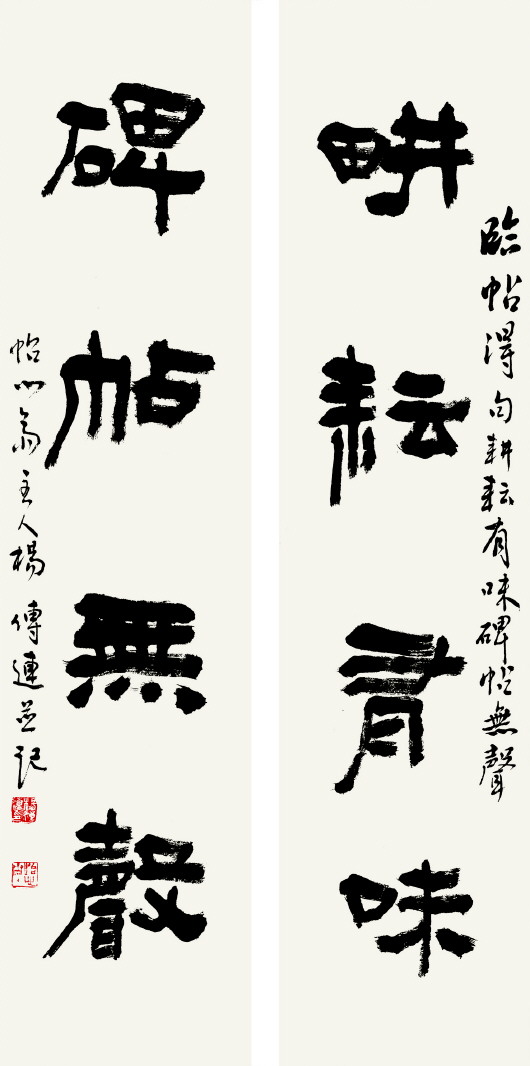 臨帖得句耕耘有味碑帖無聲
畊耘有味
碑帖無聲
怡心斋主人楊傳連並記